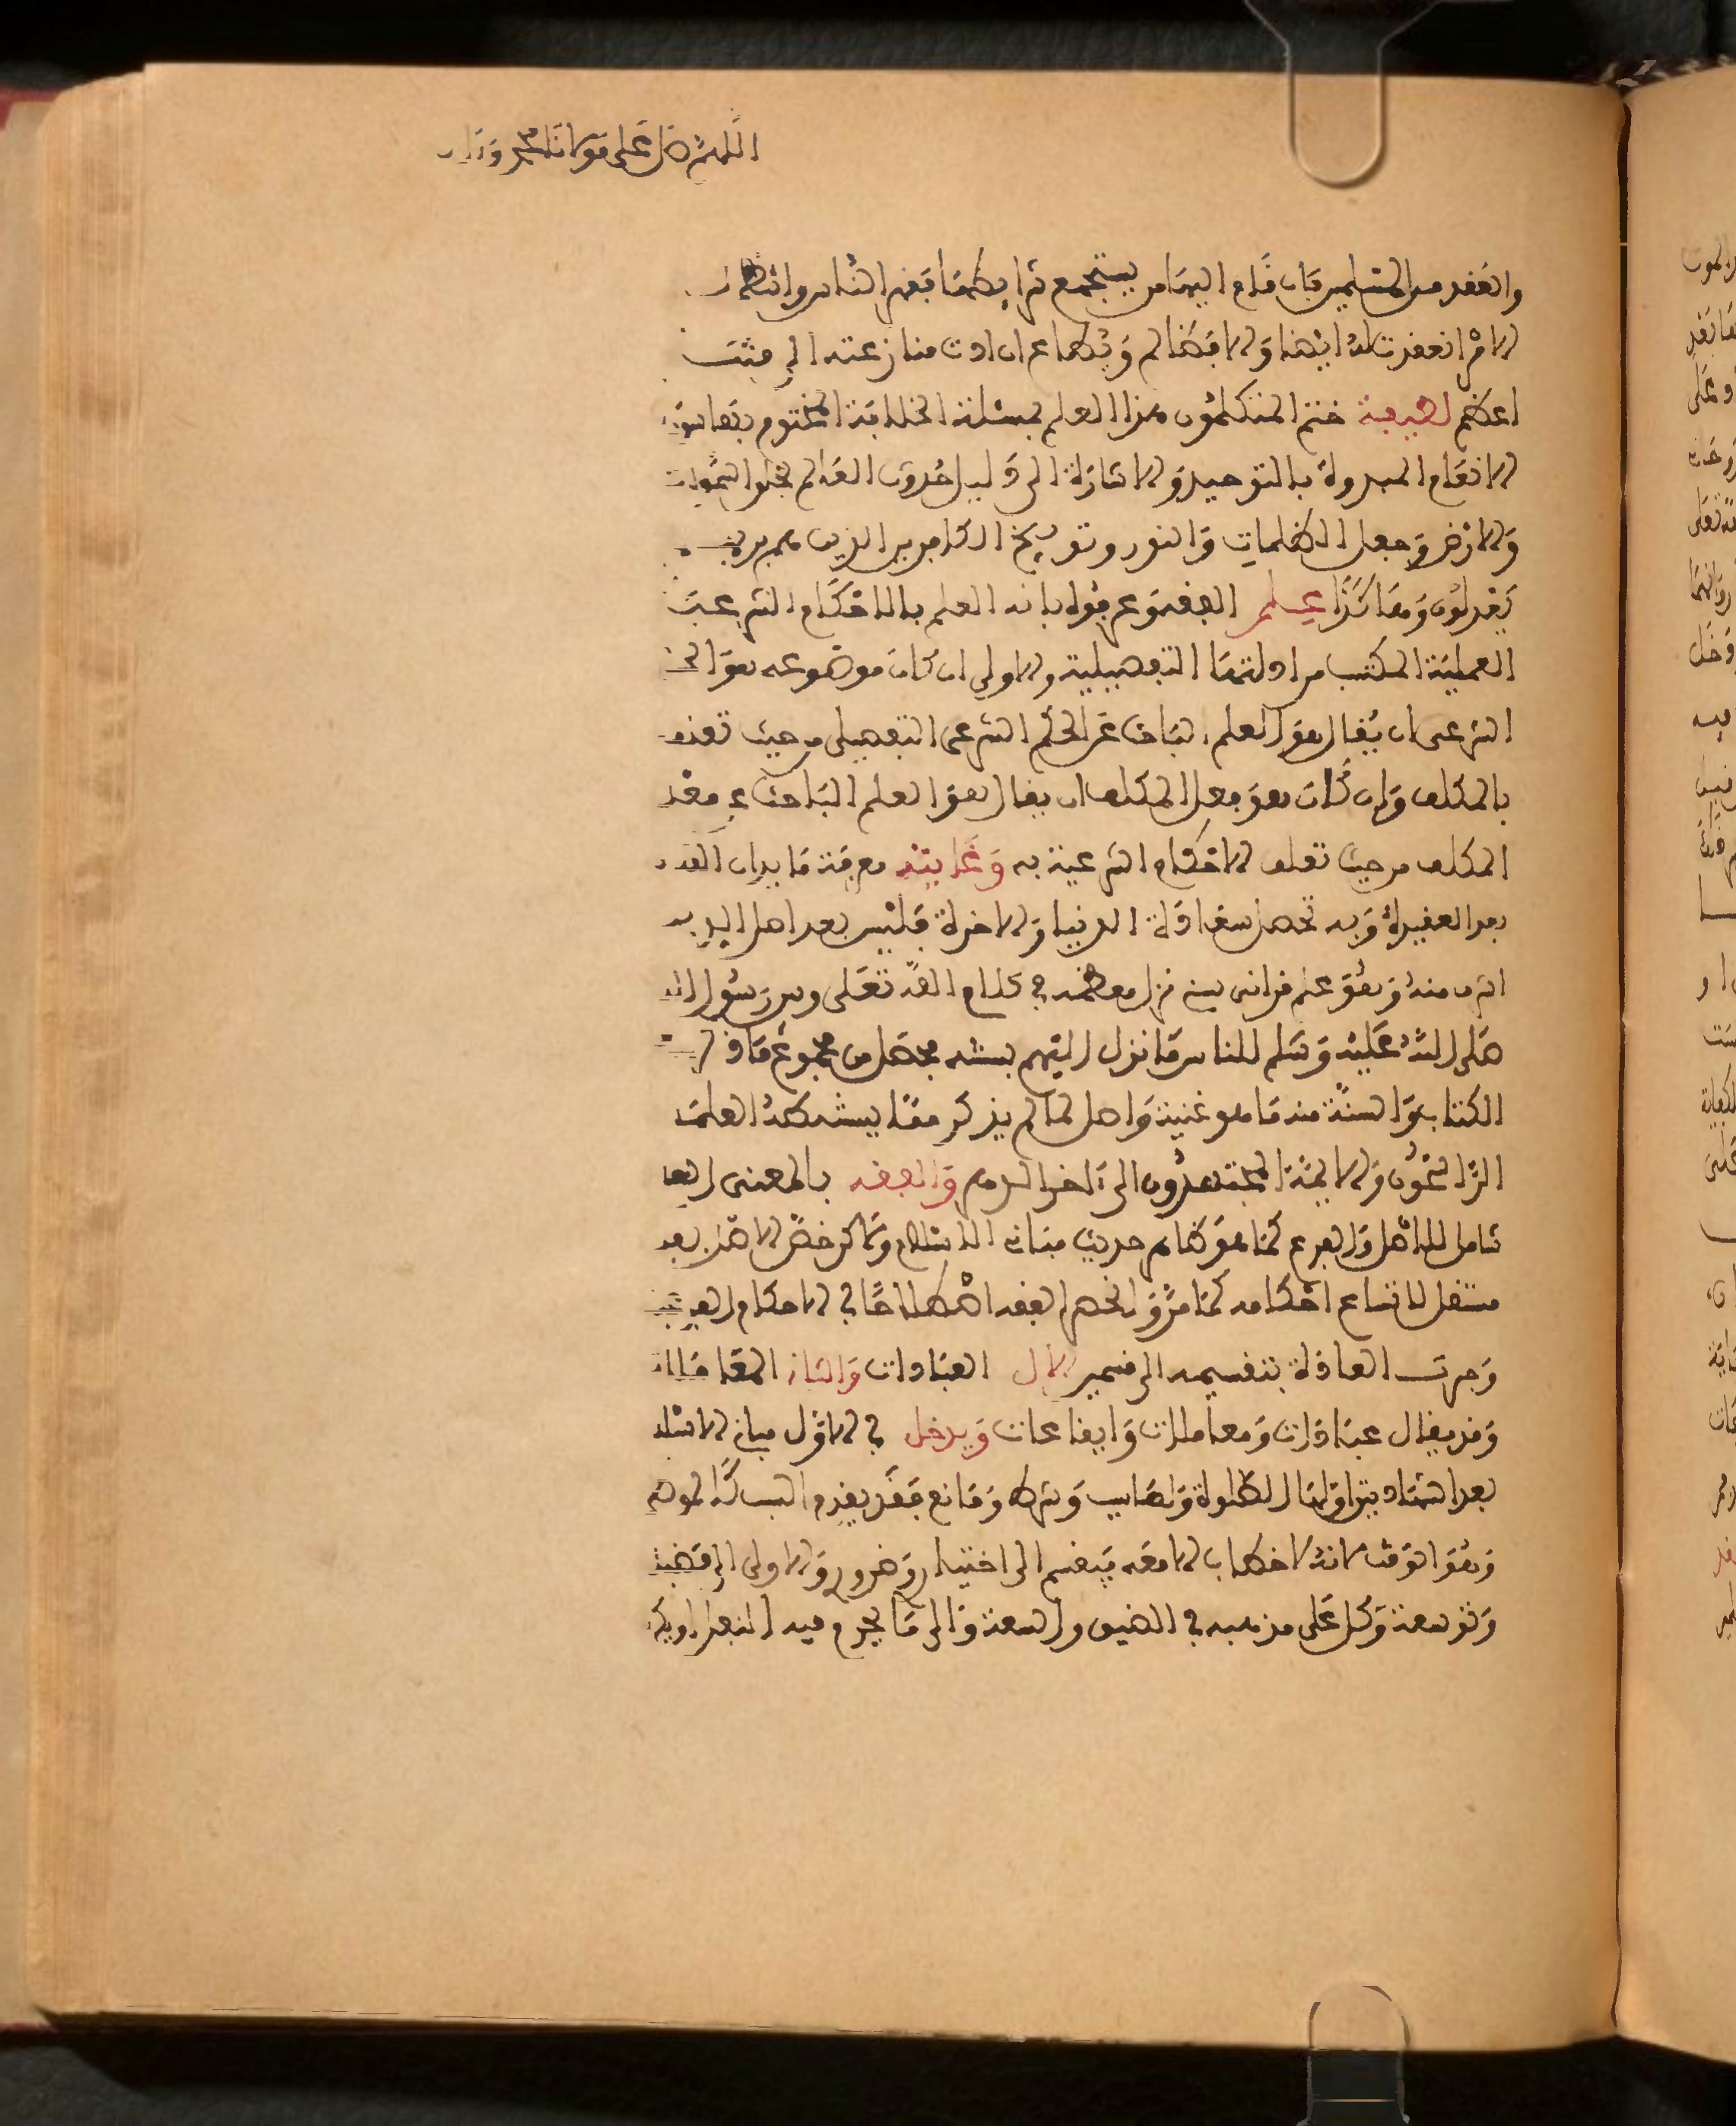 اللهم صل على مولانا محمد وآله
والعقد من المسلمين فإن قام إليها من يستجمع شرايطها فقهر الناس وانتظم
الأمر انعقدت له أيضا ولا فظالم وتطاع إن أدت منازعته إلى فتنة
أعظم لطيفة ختم المتكلمون هذا العلم بمسئلة الخلافة المختوم بها سورة
الأنعام المبدوة بالتوحيد والإشارة إلى دليل حدوث العالم بخلق السموات
والأرض وجعل الظلمات والنور وتوبيخ الكافرين الذين هم بربهم
يعدلون وها كذا علم الفقه وعرفوه بأنه العلم بالأحكام الشرعية
العملية المكتسب من أدلتها التفصيلية والأولى إن كان موضوعه هو الحكم
الشرعي أن يقال هو العلم الباحث عن الحكم الشرعي التفصيلي من حيث تعلقه
بالمكلف وإن كان هو فعل المكلف أن يقال هو العلم الباحث عن فعل
المكلف من حيث تعلق الأحكام الشرعية به وغايته معرفة ما يدان الله به
بعد العقيدة وبه تحصل سعادة الدنيا والآخرة فليس بعد أصل الدين
أشرف منه وهو علم قرآني سني نزل معظمه في كلام الله تعلى وبين رسول الله
صلى الله عليه وسلم للناس ما نزل إليهم بسنته فحصل من مجموع ما في
الكتاب والسنة منه ما هو غنية وأصل لما لم يذكر مما يستنبطه العلماء
الراسخون والأيمة المجتهدون إلى آخر الدهر والفقه بالمعنى
شامل للأصل والفرع كما هو ظاهر حديث مباني الإسلام ولاكن خص الأصل بعلم
مستقل لاتساع أحكامه كما مر وانحصر الفقه اصطلاحا في الأحكام الفرعية
وجرت العادة بتقسيمه إلى قسمين الأول العبادات والثاني المعاملات
وقد يقال عبادات ومعاملات وإيقاعات ويدخل في الأول مباني الإسلام
بعد الشهادتين أولها الصلوة ولها سبب وشرط ومانع فقد يقدم السبب كالموطإ
وهو الوقت لأنه لا خطاب لا معه ينقسم إلى اختيار وضروري والأولى إلى فضيلة
وتوسعة وكل على مذهبه في الضيق والسعة وإلى ما يحرم فيه النفل أو يكره